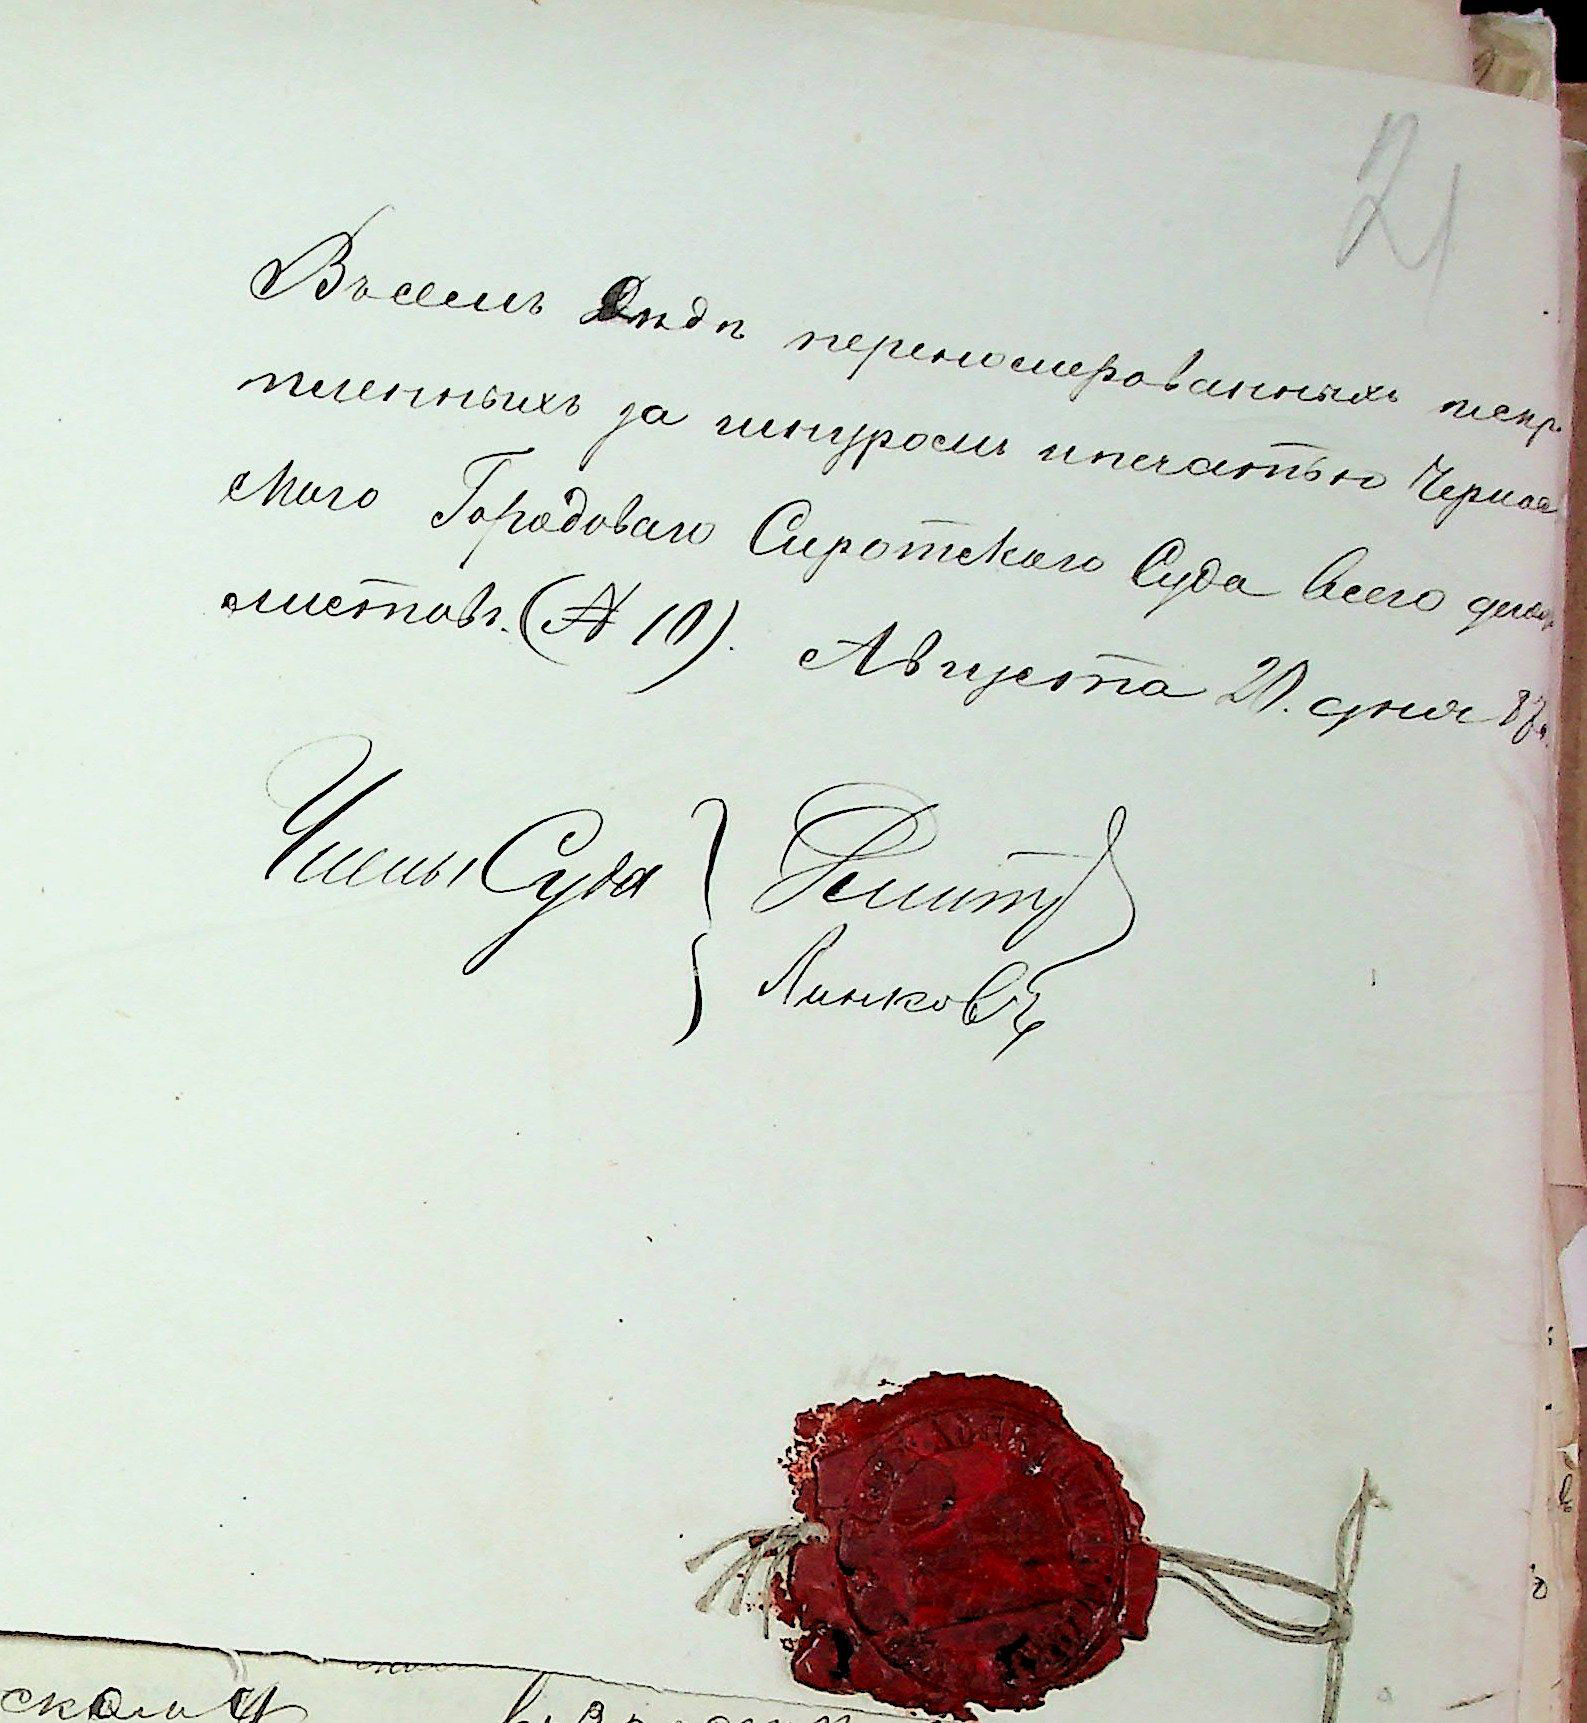 21
Въ семъ Дндѣ переномерованныхъ искр
пленныхъ за шнуромъ и печатью Черно
скаго Городоваго Сиротскаго Суда всего
листовъ. (№ 10). Августа 20. дня 87
Члены Суда } Дмитр
Линковъ